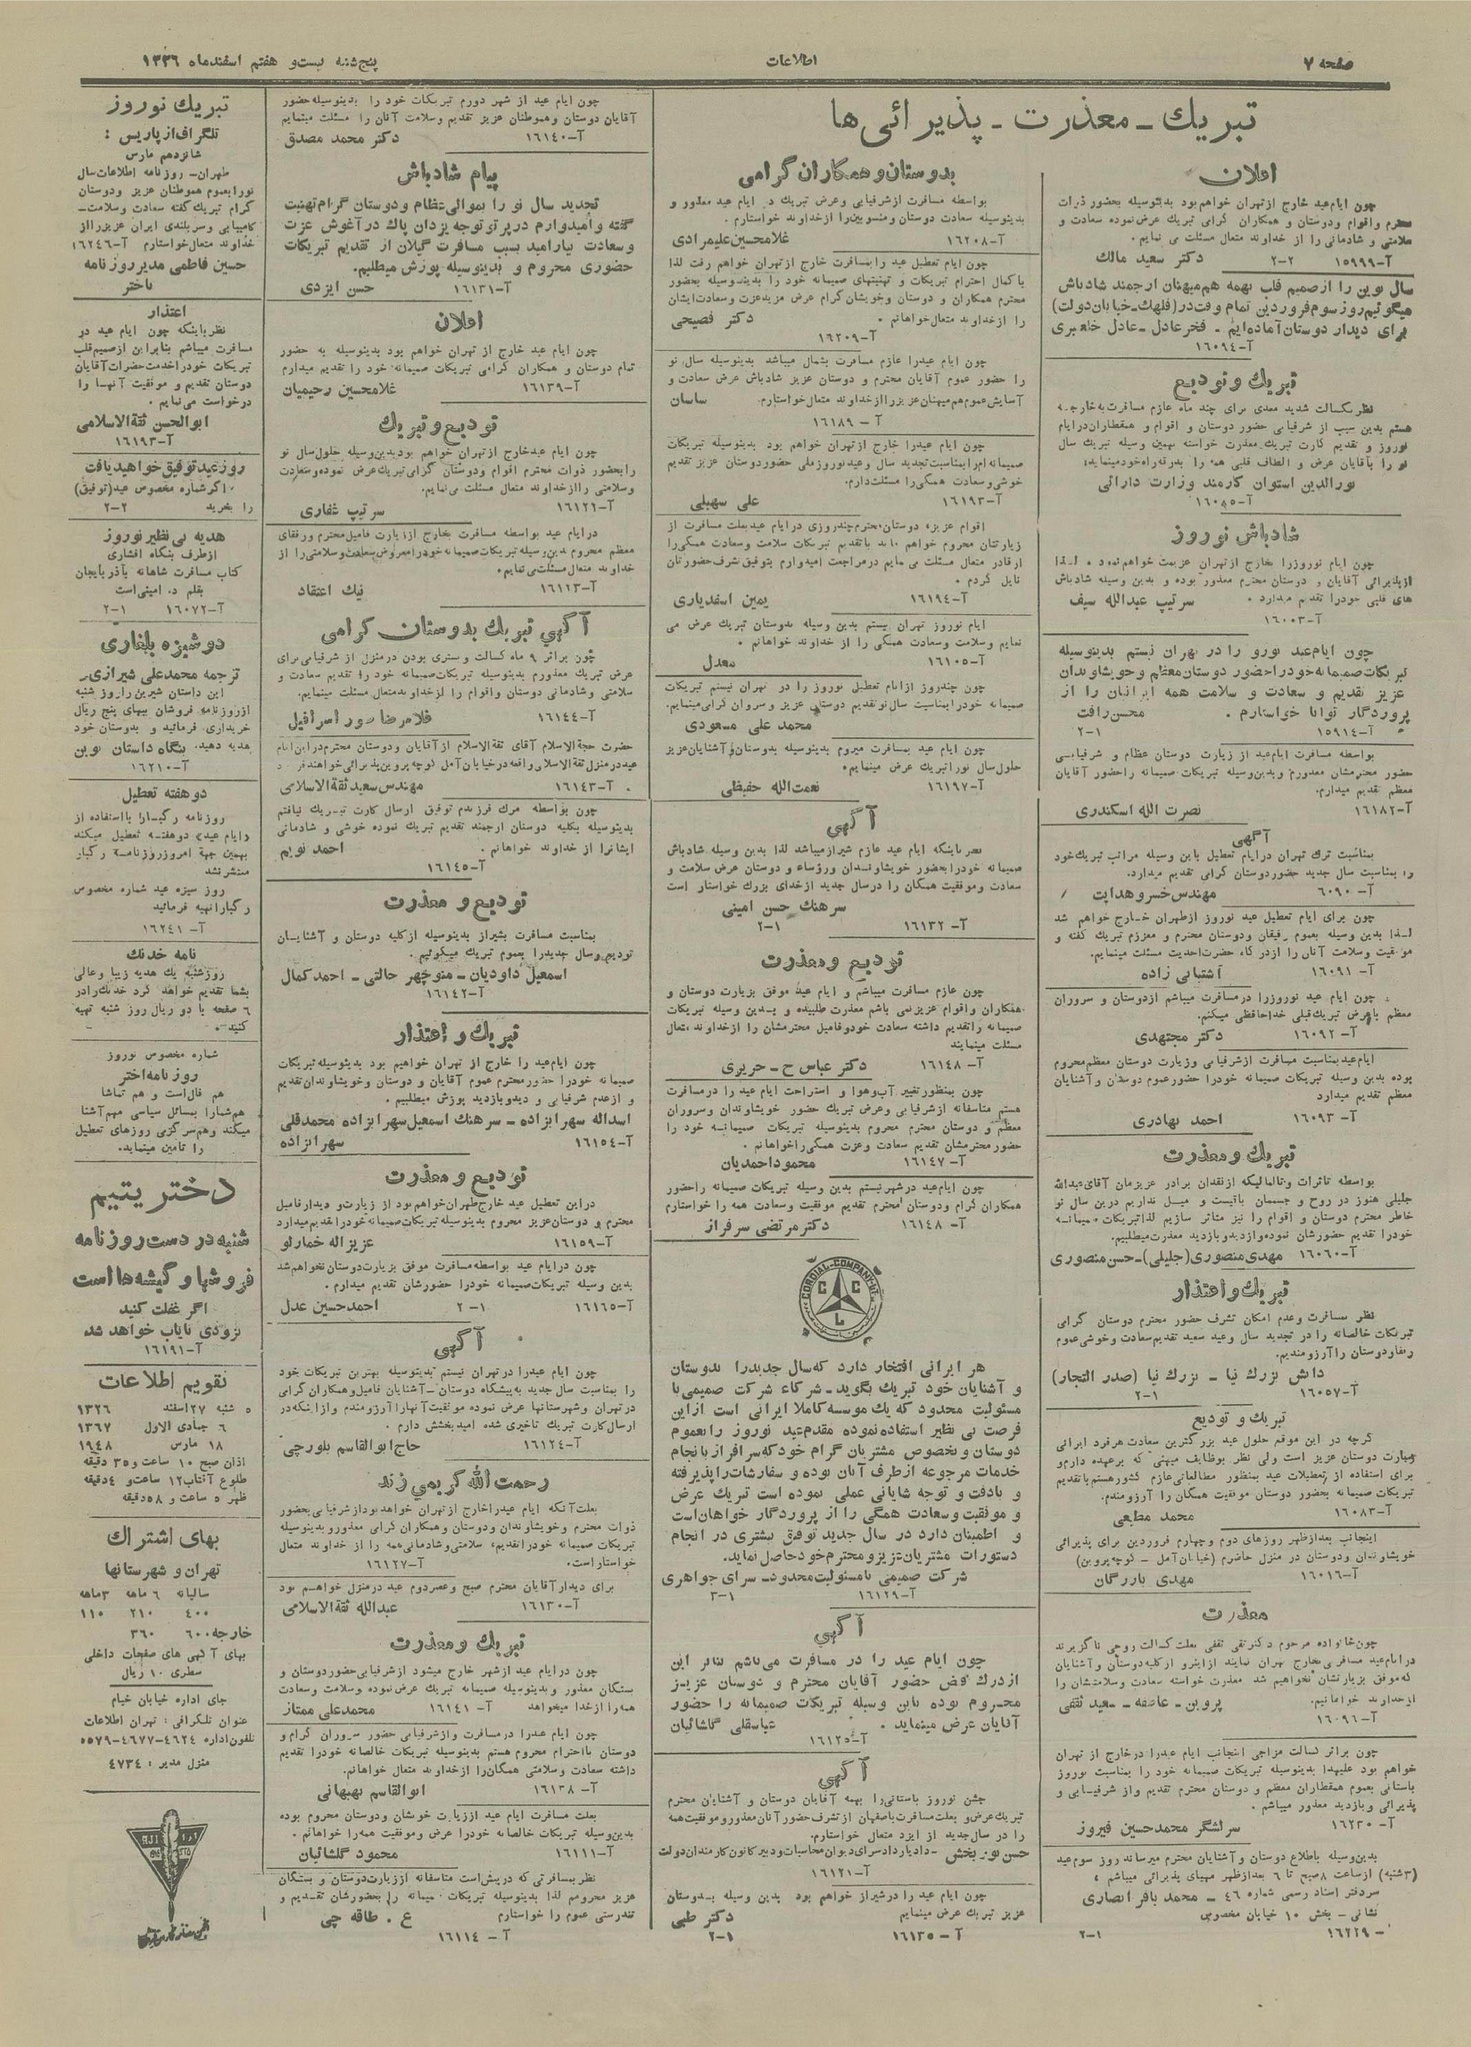 صفحه ۷
اطلاعات
پنج‌شنبه بیست و هفتم اسفندماه ۱۳۲۶
تبریك ـ معذرت ـ پذیرائی‌ها
اعلان
چون ایام عید خارج ازتهران خواهم بود بدینوسیله بحضور ذوات
محترم واقوام ودوستان و همکاران گرامی تبریك عرض نموده سعادت و
سلامتی و شادمانی را از خداوند متعال مسئلت می نمایم.
آ-۱۵۹۹۹ ۲-۲ دکتر سعید مالك
سال نوین را ازصمیم قلب بهمه هم میهنان ارجمند شادباش
میگوئیم روز سوم فروردین تمام وقت در (قلهك-خیابان دولت)
برای دیدار دوستان آماده‌ایم . فخر عادل ـ عادل خلعبری
آ-۱۶۰۹۴
تبریك و تودیع
نظر بکسالت شدید معدی برای چند ماه عازم مسافرت بخارجه
هستم بدین سبب از شرفیابی حضور دوستان و اقوام و همقطاران درایام
نوروز و تقدیم کارت تبریك معذرت خواسته بهمین وسیله تبریك سال
نو را بآقایان عرض و الطاف قلبی همه را بدرقه راه خود مینماید،
نورالدین استوان کارمند وزارت دارائی
آ-۱۶۰۸۵
شادباش نوروز
چون ایام نوروز را بخارج ازتهران عزیمت خواهم نمود . لذا
از پذیرائی آقایان و دوستان محترم معذور بوده و بدین وسیله شادباش
های قلبی خودرا تقدیم میدارد . سرتیپ عبدالله سیف
آ-۱۶۰۰۳
چون ایام عید نوروز را در تهران نیستم بدینوسیله
تبریکات صمیمانه خودرا حضور دوستان معظم و خویشاوندان
عزیز تقدیم و سعادت و سلامت همه ایرانیان را از
پروردگار توانا خواستارم . محسن رافت
آ-۱۵۹۱۴ ۲-۱
بواسطه مسافرت ایام عید از زیارت دوستان عظام و شرفیابی
حضور محترمشان معذورم و بدین وسیله تبریکات صمیمانه را حضور آقایان
معظم تقدیم میدارم.
آ-۱۶۱۸۲ نصرت الله اسکندری
آگهی
بمناسبت ترك تهران درایام تعطیل باین وسیله مراتب تبریك خود
را بمناسبت سال جدید حضور دوستان گرامی تقدیم میدارد.
آ- ۶۰۹۰ مهندس خسرو هدایت
چون برای ایام تعطیل عید نوروز ازطهران خارج خواهم شد
لذا بدین وسیله بعموم رفیقان ودوستان محترم و معزز تبریك گفته و
موفقیت وسلامت آنان را از درگاه حضرت احدیت مسئلت مینمایم.
آ- ۱۶۰۹۱ آشتیانی زاده
چون ایام عید نوروز را در مسافرت میباشم از دوستان و سروران
معظم با عرض تبریك قبلی خداحافظی میکنم.
آ- ۱۶۰۹۲ دکتر مجتهدی
ایام عید بمناسبت مسافرت از شرفیابی وزیارت دوستان معظم محروم
بوده بدین وسیله تبریکات صمیمانه خودرا حضور عموم دوستان و آشنایان
معظم تقدیم میدارد
آ- ۱۶۰۹۳ احمد بهادری
تبریك و معذرت
بواسطه تاثرات و تالمانیکه از فقدان برادر عزیزمان آقای عبدالله
جلیلی هنوز در روح و جسممان باقیست و میل نداریم درین سال نو
خاطر محترم دوستان و اقوام را نیز متاثر سازیم لذا تبریکات صمیمانه
خودرا تقدیم حضورشان نموده و از دید و بازدید معذرت میطلبیم.
آ-۱۶۰۶۰ مهدی منصوری (جلیلی)-حسن منصوری
تبریك و اعتذار
نظر بمسافرت وعدم امکان تشرف حضور محترم دوستان گرامی
تبریکات خالصانه را در تجدید سال وعید سعید تقدیم سعادت و خوشی عموم
رفقا ودوستان را آرزومندیم.
دانش بزرگ نیا ـ بزرگ نیا (صدرالتجار)
آ-۱۶۰۵۷ ۲-۱
تبریك و تودیع
گرچه در این موقع حلول عید بزرگترین سعادت هرفرد ایرانی
زیارت دوستان عزیز است ولی نظر بوظایف میهنی که برعهده دارم و
برای استفاده از تعطیلات عید بمنظور مطالعاتی عازم کشور هستم با تقدیم
تبریکات صمیمانه بحضور دوستان موفقیت همگان را آرزومندم.
آ-۱۶۰۸۳ محمد مطیعی
اینجانب بعدازظهر روزهای دوم و چهارم فروردین برای پذیرائی
خویشاوندان ودوستان در منزل حاضرم (خیابان آمل - کوچه پروین)
آ-۱۶۰۱۶ مهدی بازرگان
معذرت
چون خانواده مرحوم دکتر تقی ثقفی بعلت کسالت روحی ناگزیرند
درایام عید مسافرتی بخارج تهران نمایند از اینرو از کلیه دوستان و آشنایان
که موفق بزیارتشان نخواهیم شد معذرت خواسته سعادت وسلامتشان را
ازخداوند خواهانیم. پروین - عاصفه - سعید ثقفی
آ-۱۶۰۹۶
چون براثر کسالت مزاجی اینجانب ایام عید را در خارج از تهران
خواهم بود علیهذا بدینوسیله تبریکات صمیمانه خود را بمناسبت نوروز
باستانی بعموم همقطاران معظم و دوستان محترم تقدیم و از شرفیابی و
پذیرائی وبازدید معذور میباشم .
آ- ۱۶۲۳۰ سرلشگر محمدحسین فیروز
بدین وسیله باطلاع دوستان و آشنایان محترم میرساند روز سوم عید
(۳شنبه) ازساعت ۸صبح تا ۶ بعدازظهر مهیای پذیرائی میباشم ،
سردفتر اسناد رسمی شماره ۴۶ ـ محمد باقر انصاری
نشانی - بخش ۱۰ خیابان مخصوص
-۱۶۲۲۹ ۲-۱
بدوستان و همکاران گرامی
بواسطه مسافرت ازشرفیابی وعرض تبریك در ایام عید معذور و
بدینوسیله سعادت دوستان ومنسوبین را ازخداوند خواستارم.
آ-۱۶۲۰۸ غلامحسین علیمرادی
چون ایام تعطیل عید را بمسافرت خارج ازتهران خواهم رفت لذا
باکمال احترام تبریکات و تهنیتهای صمیمانه خود را بدینوسیله بحضور
محترم همکاران و دوستان وخویشان گرام عرض مزید عزت و سعادت ایشان
را از خداوند متعال خواهانم. دکتر فصیحی
آ-۱۶۲۰۹
چون ایام عید را عازم مسافرت بشمال میباشد بدینوسیله سال نو
را حضور عموم آقایان محترم و دوستان عزیز شادباش عرض سعادت و
آسایش عموم هم میهنان عزیز را از خداوند متعال خواستارم. ساسان
آ- ۱۶۱۸۹
چون ایام عیدرا خارج ازتهران خواهم بود بدینوسیله تبریکات
صمیمانه‌ام را بمناسبت تجدید سال وعید نوروز ملی حضور دوستان عزیز تقدیم
خوشی وسعادت همگی را مسئلت دارم.
آ-۱۶۱۹۳ علی سهیلی
اقوام عزیز، دوستان محترم چند روزی درایام عید بعلت مسافرت از
زیارتتان محروم خواهم ماند با تقدیم تبریکات سلامت وسعادت همگی را
از قادر متعال مسئلت می نمایم در مراجعت امیدوارم بتوفیق شرف حضورتان
نایل گردم .
آ-۱۶۱۹۴ یمین اسفدیاری
ایام نوروز تهران نیستم بدین وسیله بدوستان تبریك عرض می
نمایم وسلامت وسعادت همگی را از خداوند خواهانم.
آ-۱۶۱۰۵ معدل
چون چندروز ازایام تعطیل نوروز را در تهران نیستم تبریکات
صمیمانه خودرا بمناسبت سال نو تقدیم دوستان عزیز و سروران گرامی مینمایم.
محمد علی مسعودی
چون ایام عید بمسافرت میروم بدینوسیله بدوستان و آشنایان عزیز
حلول سال نورا تبریك عرض مینمایم.
آ-۱۶۱۹۷ نعمت الله حفیظی
آگهی
نظر باینکه ایام عید عازم شیراز میباشد لذا بدین وسیله شادباش
صمیمانه خودرا بحضور خویشاوندان ورؤساء و دوستان عرض سلامت و
سعادت وموفقیت همگان را درسال جدید ازخدای بزرك خواستار است
سرهنك حسن امینی
آ- ۱۶۱۳۲ ۲-۱
تودیع و معذرت
چون عازم مسافرت میباشم و ایام عید موفق بزیارت دوستان و
همکاران واقوام عزیز نمی باشم معذرت طلبیده و بدین وسیله تبریکات
صمیمانه را تقدیم داشته سعادت خود و فامیل محترمشان را از خداوند متعال
مسئلت مینمایند
آ- ۱۶۱۴۸ دکتر عباس ح ـ حریری
چون بمنظور تغییر آب وهوا و استراحت ایام عید را در مسافرت
هستم متاسفانه از شرفیابی وعرض تبریك حضور خویشاوندان وسروران
معظم و دوستان محترم محروم بدینوسیله تبریکات صمیمانه خود را
حضور محترمشان تقدیم سعادت وعزت همگی را خواهانم.
آ- ۱۶۱۴۷ محمود احمدیان
چون ایام عید درشهر نیستم بدین وسیله تبریکات صمیمانه را حضور
همکاران گرام ودوستان محترم تقدیم موفقیت وسعادت همه را خواستارم
آ- ۱۶۱۴۸ دکتر مرتضی سرفراز
CORDIAL-COMPANY
C C L
هر ایرانی افتخار دارد که سال جدید را بدوستان
و آشنایان خود تبریك بگوید ـ شرکاء شرکت صمیمی با
مسئولیت محدود که یك موسسه کاملا ایرانی است ازاین
فرصت بی نظیر استفاده نموده مقدم عید نوروز را بعموم
دوستان و بخصوص مشتریان گرام خود که سرافراز با انجام
خدمات مرجوعه ازطرف آنان بوده و سفارشات را پذیرفته
و بادقت و توجه شایانی عملی نموده است تبریك عرض
و موفقیت وسعادت همگی را از پروردگار خواهان است
و اطمینان دارد در سال جدید توفیق بیشتری در انجام
دستورات مشتریان عزیز و محترم خود حاصل نماید.
شرکت صمیمی بامسئولیت محدود ـ سرای جواهری
آ-۱۶۱۲۹ ۳-۱
آگهی
چون ایام عید را در مسافرت می باشم بنابر این
از درك فیض حضور آقایان محترم و دوستان عزیز
محروم بوده باین وسیله تبریکات صمیمانه را حضور
آقایان عرض مینماید . عباسقلی گلشائیان
آ-۱۶۱۲۵
آگهی
جشن نوروز باستانی را بهمه آقایان دوستان و آشنایان محترم
تبریك عرض و بعلت مسافرت باصفهان از تشرف حضور آنان معذور و موفقیت همه
را در سال جدید از ایزد متعال خواستارم.
حسن نوربخش -دادیار دادسرای دیوان محاسبات و دبیر کانون کارمندان دولت
آ-۱۶۱۲۱
چون ایام عید را در شیراز خواهم بود بدین وسیله بدوستان
عزیز تبریك عرض مینمایم دکتر طبی
آ- ۱۶۱۳۵ ۲-۱
چون ایام عید از شهر دورم تبریکات خود را بدینوسیله حضور
آقایان دوستان وهموطنان عزیز تقدیم وسلامت آنان را مسئلت مینمایم
آ-۱۶۱۴۰ دکتر محمد مصدق
پیام شادباش
تجدید سال نو را بموالی عظام و دوستان گرام تهنیت
گفته و امیدوارم در پرتو توجه یزدان پاك در آغوش عزت
و سعادت بیارامید بسبب مسافرت گیلان از تقدیم تبریکات
حضوری محروم و بدینوسیله پوزش میطلبم.
آ-۱۶۱۳۱ حسن ایزدی
اعلان
چون ایام عید خارج از تهران خواهم بود بدینوسیله به حضور
تمام دوستان و همکاران گرامی تبریکات صمیمانه خود را تقدیم میدارم
آ-۱۶۱۳۹ غلامحسین رحیمیان
تودیع و تبریك
چون ایام عید خارج ازتهران خواهم بود بدین وسیله حلول سال نو
را بحضور ذوات محترم اقوام ودوستان گرامی تبریك عرض نموده وسعادت
وسلامتی را از خداوند متعال مسئلت می نمایم.
آ-۱۶۱۲۱ سرتیپ غفاری
درایام عید بواسطه مسافرت بخارج از زیارت فامیل محترم ورفقای
معظم محروم بدین وسیله تبریکات صمیمانه خودرا معروض سعادت وسلامتی را از
خداوند متعال مسئلت می نمایم.
آ-۱۶۱۲۳ نیك اعتقاد
آگهی تبریك بدوستان گرامی
چون براثر ۹ ماه کسالت و بستری بودن در منزل از شرفیابی برای
عرض تبریك معذورم بدینوسیله تبریکات صمیمانه خودرا تقدیم سعادت و
سلامتی و شادمانی دوستان واقوام را از خداوند متعال مسئلت مینمایم.
آ-۱۶۱۴۴ غلامرضا صور اسرافیل
حضرت حجة الاسلام آقای ثقة الاسلام از آقایان ودوستان محترم در این ایام
عید در منزل ثقة الاسلامی واقعه در خیابان آمل کوچه پروین پذیرائی خواهند فرمود
آ-۱۶۱۴۳ مهندس سعید ثقة الاسلامی
چون بواسطه مرك فرزندم توفیق ارسال کارت تبریك نیافتم
بدینوسیله بکلیه دوستان ارجمند تقدیم تبریك نموده خوشی و شادمانی
ایشانرا از خداوند خواهانم. احمد نویم
آ-۱۶۱۴۵
تودیع و معذرت
بمناسبت مسافرت بشیراز بدینوسیله از کلیه دوستان و آشنایان
تودیع و سال جدید را بعموم تبریك میگوئیم.
اسمعیل داودیان ـ منوچهر حالتی ـ احمد کمال
آ-۱۶۱۴۲
تبریك و اعتذار
چون ایام عید را خارج از تهران خواهیم بود بدینوسیله تبریکات
صمیمانه خودرا حضور محترم عموم آقایان و دوستان وخویشاوندان تقدیم
و ازعدم شرفیابی و دید و بازدید پوزش میطلبیم.
اسداله سهرابزاده ـ سرهنك اسمعیل سهرابزاده محمدقلی
آ-۱۶۱۵۴ سهرابزاده
تودیع و معذرت
دراین تعطیل عید خارج طهران خواهم بود از زیارت و دیدار فامیل
محترم و دوستان عزیز محروم بدینوسیله تبریکات صمیمانه خودرا تقدیم میدارد
آ-۱۶۱۵۹ عزیزاله خمارلو
چون درایام عید بواسطه مسافرت موفق بزیارت دوستان نخواهم شد
بدین وسیله تبریکات صمیمانه خودرا حضورشان تقدیم میدارم .
آ-۱۶۱۶۵ ۲-۱ احمدحسین عدل
آگهی
چون ایام عیدرا درتهران نیستم بدینوسیله بهترین تبریکات خود
را بمناسبت سال جدید به پیشگاه دوستان ـ آشنایان فامیل وهمکاران گرامی
در تهران و شهرستانها عرض نموده موفقیت آنها را آرزومندم و ازاینکه در
ارسال کارت تبریك تاخیری شده امید بخشش دارم .
آ-۱۶۱۲۴ حاج ابوالقاسم بلورچی
رحمت الله کریمی زند
بعلت آنکه ایام عید را خارج ازتهران خواهد بود از شرفیابی بحضور
ذوات محترم وخویشاوندان ودوستان وهمکاران گرامی معذور و بدینوسیله
تبریکات صمیمانه خودرا تقدیم، سلامتی وشادمانی همه را از خداوند متعال
خواستار است. آ-۱۶۱۲۷
برای دیدار آقایان محترم صبح وعصر دوم عید در منزل خواهم بود
آ-۱۶۱۳۰ عبدالله ثقة الاسلامی
تبریك و معذرت
چون درایام عید ازشهر خارج میشود ازشرفیابی حضور دوستان و
بستگان معذور و بدینوسیله صمیمانه تبریك عرض نموده وسلامت وسعادت
همه را ازخدا میخواهد آ- ۱۶۱۴۱ محمدعلی ممتاز
چون ایام عیدرا در مسافرت و ازشرفیابی حضور سروران گرام و
دوستان بااحترام محروم هستم بدینوسیله تبریکات خالصانه خودرا تقدیم
داشته سعادت وسلامتی همگان را از خداوند متعال خواهانم.
آ- ۱۶۱۳۸ ابوالقاسم بهبهانی
بعلت مسافرت ایام عید از زیارت خویشان ودوستان محروم بوده
بدین وسیله تبریکات خالصانه خودرا عرض وموفقیت همه را خواهانم.
آ-۱۶۱۱۱ محمود گلشائیان
نظر بمسافرتی که درپیش است متاسفانه از زیارت دوستان و بستگان
عزیز محرومم لذا بدینوسیله تبریکات صمیمانه را بحضورشان تقدیم و
تندرستی عموم را خواستارم ع . طاقه چی
آ- ۱۶۱۱۴
تبریك نوروز
تلگراف از پاریس :
شانزدهم مارس
طهران- روزنامه اطلاعات سال
نو را بعموم هموطنان عزیز ودوستان
گرام تبریك گفته سعادت وسلامت-
کامیابی وسربلندی ایران عزیز را از
خداوند متعال خواستارم آ-۱۶۲۴۶
حسین فاطمی مدیر روزنامه
باختر
اعتذار
نظر باینکه چون ایام عید در
مسافرت میباشم بنابراین ازصمیم قلب
تبریکات خودرا خدمت حضرات آقایان
دوستان تقدیم و موفقیت آنها را
درخواست می نمایم.
ابوالحسن ثقة الاسلامی
آ-۱۶۱۹۳
روز عید توفیق خواهید یافت
اگر شماره مخصوص عید(توفیق)
را بخرید ۲-۲
هدیه بی نظیر نوروز
ازطرف بنگاه افشاری
کتاب مسافرت شاهانه بآذربایجان
بقلم د. امینی است
آ-۱۶۰۷۲ ۲-۱
دوشیزه بلغاری
ترجمه محمدعلی شیرازی-
این داستان شیرین را روز شنبه
از روزنامه فروشان ببهای پنج ریال
خریداری فرمائید و بدوستان خود
هدیه دهید. بنگاه داستان نوین
آ-۱۶۲۱۰
دو هفته تعطیل
روزنامه رگبار با استفاده از
«ایام عید» دوهفته تعطیل میکند
بهمین جهة امروز روزنامه رگبار
منتشر نشد
روز سیزه عید شماره مخصوص
رگبار را تهیه فرمائید
آ- ۱۶۲۴۱
نامه خدنك
روزشنبه یك هدیه زیبا وعالی
بشما تقدیم خواهد کرد خدنك را در
۶ صفحه با دو ریال روز شنبه تهیه
کنید .
شماره مخصوص نوروز
روزنامه اختر
هم فال است و هم تماشا
هم شما را بمسائل سیاسی مهم آشنا
میکند وهم سرگرمی روزهای تعطیل
را تامین مینماید.
دختر یتیم
شنبه در دست روزنامه
فروشها و گیشه‌ها است
اگر غفلت کنید
بزودی نایاب خواهد شد
آ-۱۶۱۹۱
تقویم اطلاعات
۵ شنبه ۲۷ اسفند ۱۳۲۶
۶ جمادی الاول ۱۳۶۷
۱۸ مارس ۱۹۴۸
اذان صبح ۱۰ ساعت و ۳۵ دقیقه
طلوع آفتاب ۱۲ ساعت و ۴ دقیقه
ظهر ۵ ساعت و ۵۸ دقیقه
بهای اشتراك
تهران و شهرستانها
سالیانه ۶ ماهه ۳ماهه
۴۰۰ ۲۱۰ ۱۱۰
خارجه ۶۰۰ ۳۶۰
بهای آگهی های صفحات داخلی
سطری ۱۰ ریال
جای اداره خیابان خیام
عنوان تلگرافی : تهران اطلاعات
تلفون اداره ۴۶۲۴-۴۶۷۷-۵۵۷۹
منزل مدیر : ۴۷۳۴